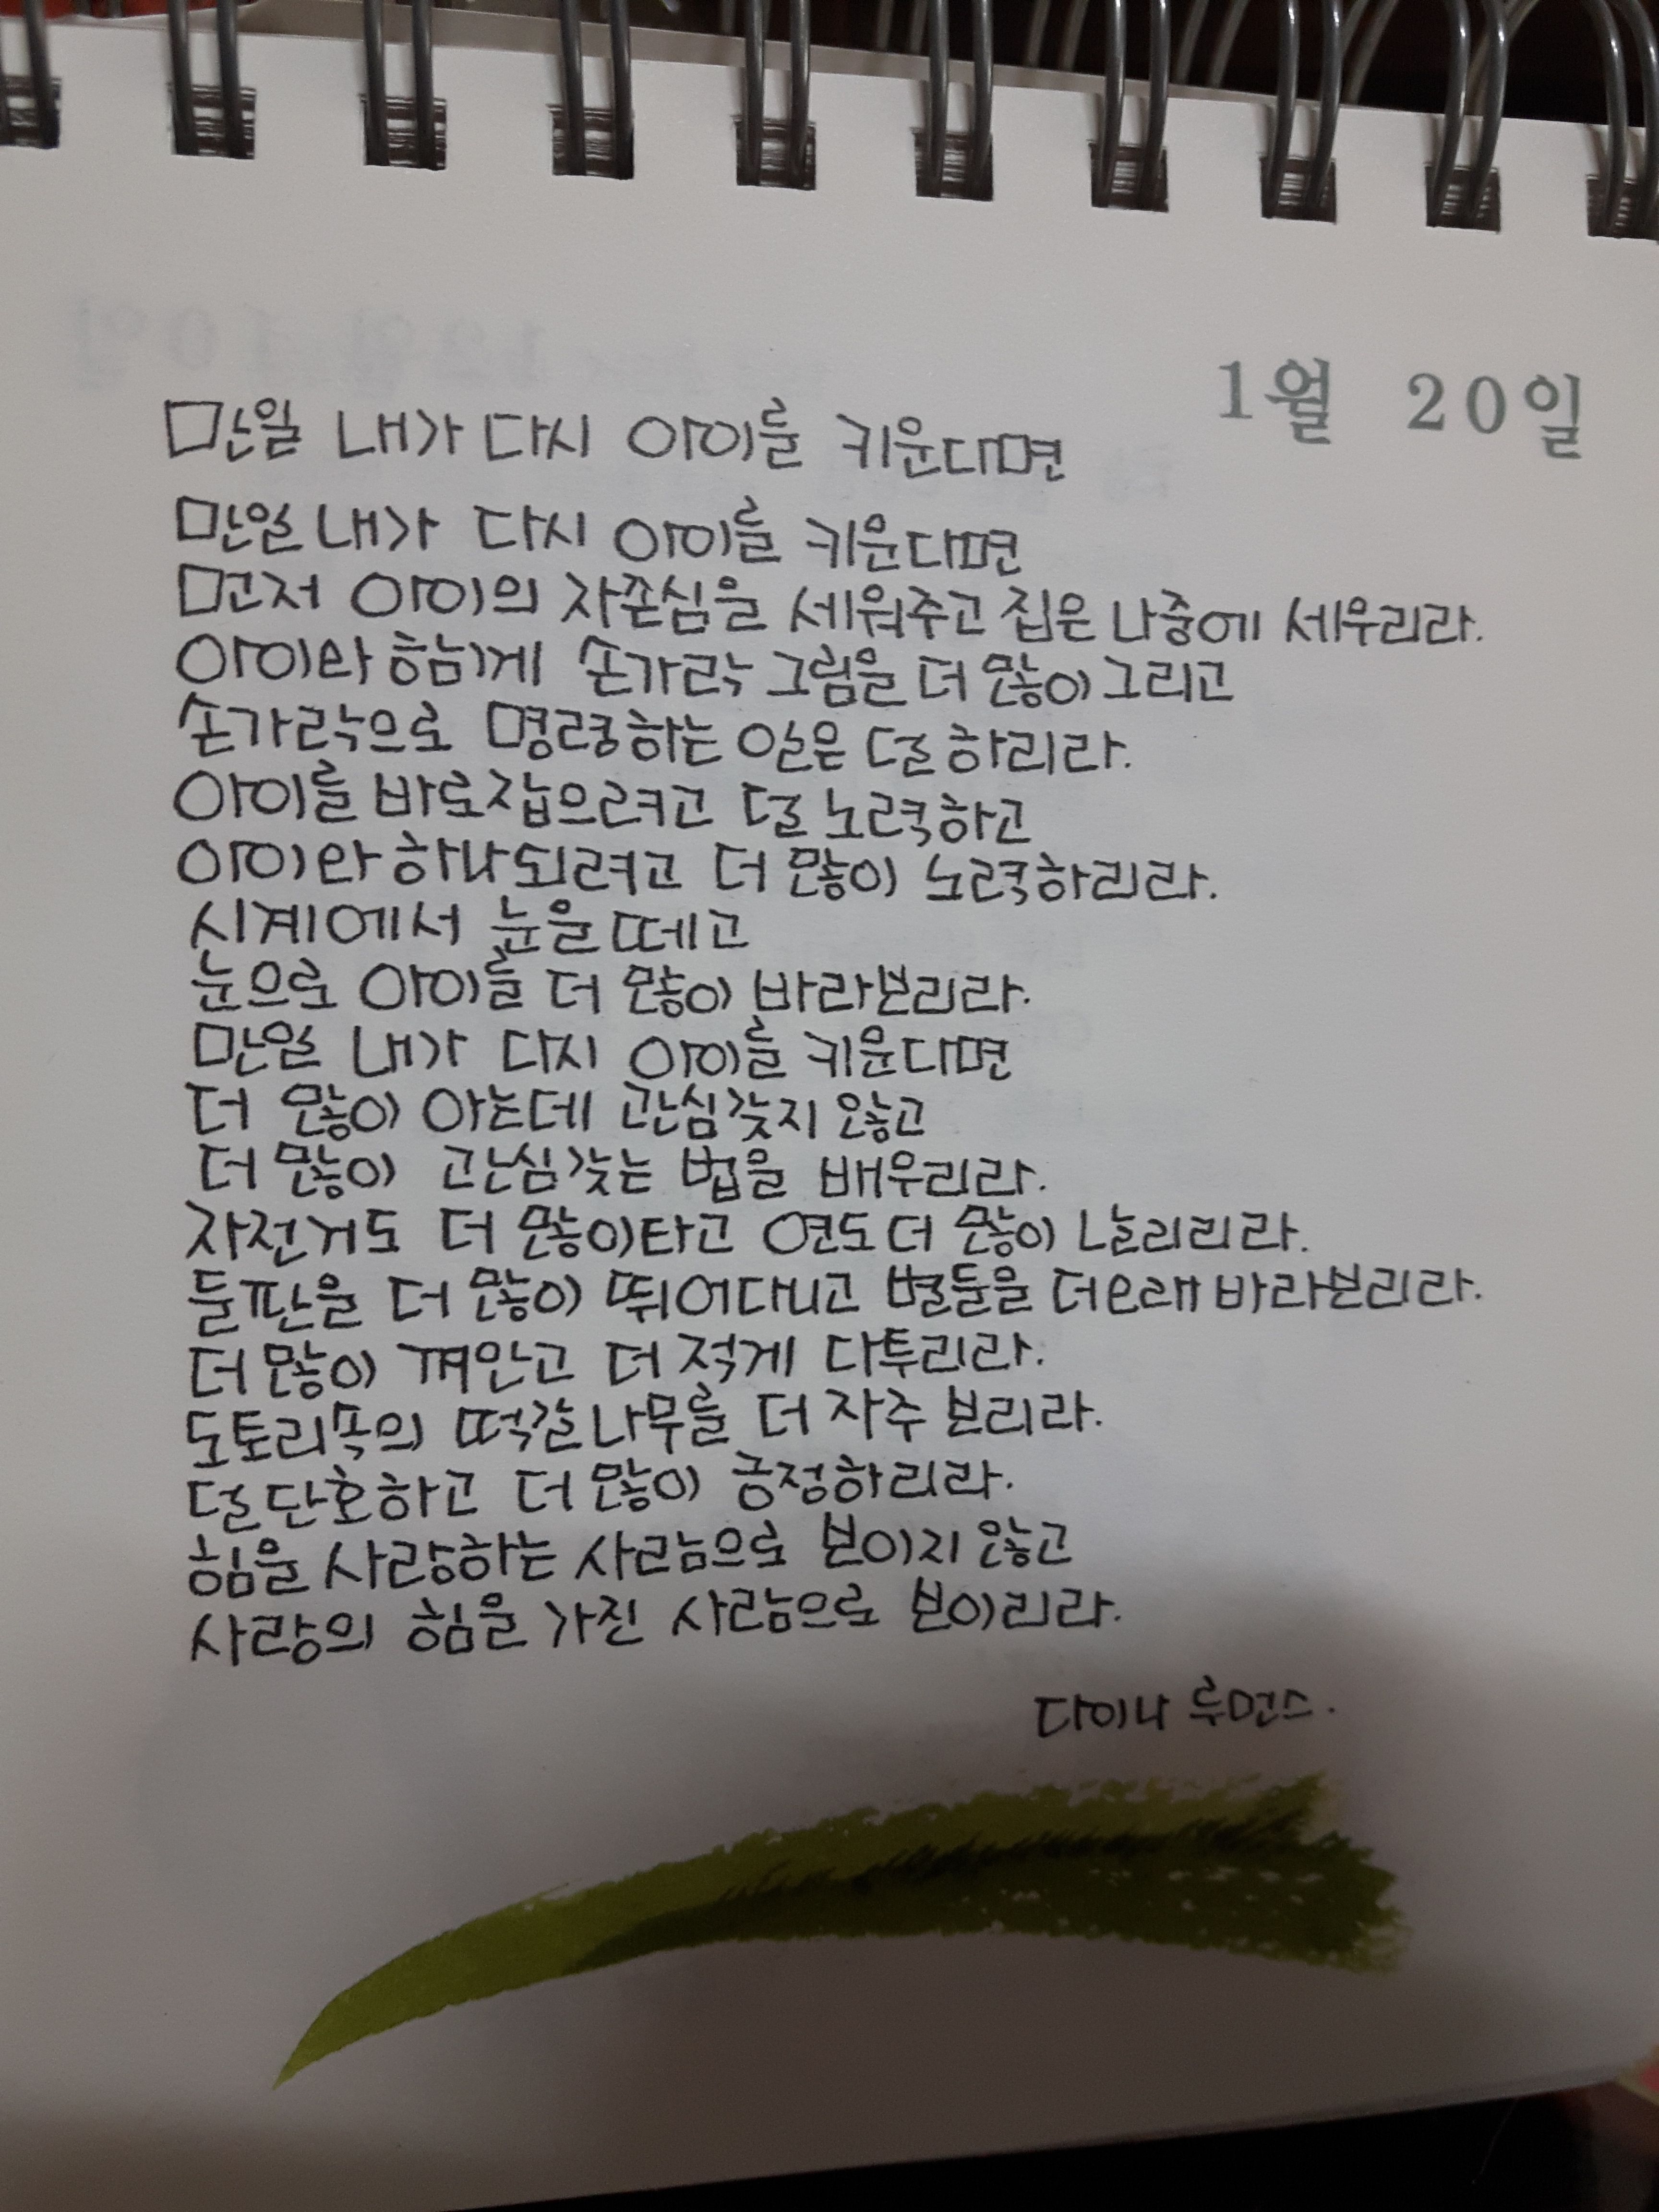 1월 20일
만일 내가 다시 아이를 키운다면
만일 내가 다시 아이를 키운다면
먼저 아이의 자존심을 세워주고 집은 나중에 세우리라.
아이와 함께 손가락 그림을 더 많이 그리고
손가락으로 명령하는 일은 덜 하리라.
아이를 바로잡으려고 덜 노력하고
아이와 하나되려고 더 많이 노력하리라.
시계에서 눈을 떼고
눈으로 아이를 더 많이 바라보리라.
만일 내가 다시 아이를 키운다면
더 많이 아는데 관심갖지 않고
더 많이 관심갖는 법을 배우리라.
자전거도 더 많이 타고 연도 더 많이 날리리라.
들판을 더 많이 뛰어다니고 별들을 더 오래 바라보리라.
더 많이 껴안고 더 적게 다투리라.
도토리 속의 떡갈나무를 더 자주 보리라.
덜 단호하고 더 많이 긍정하리라.
힘을 사랑하는 사람으로 보이지 않고
사랑의 힘을 가진 사람으로 보이리라.
다이나 루먼스.